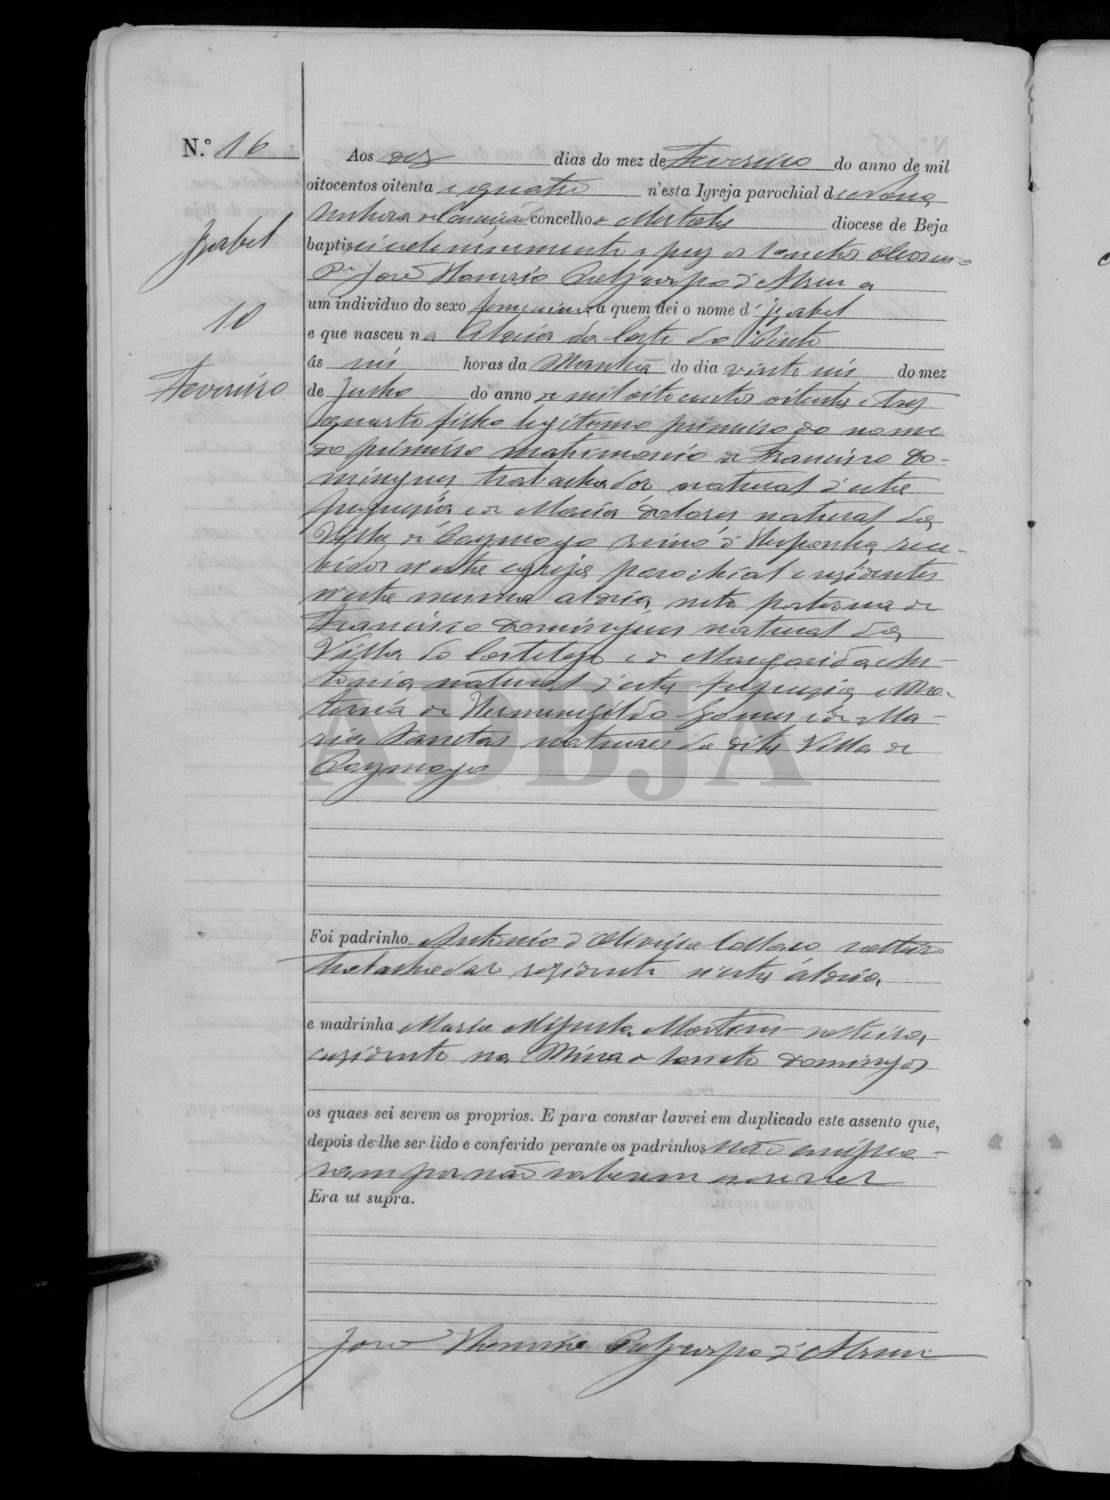 N.º 16
Izabel
10
Fevereiro
Aos dez dias do mez de Fevereiro do anno de mil
oitocentos oitenta e quatro n'esta Igreja parochial de Nossa
Senhora da Conceição concelho de Mertola diocese de Beja
baptisei solemnemente e puz os sanctos oleos
José d'Abreu a
um individuo do sexo femenino, a quem dei o nome d' Izabel
e que nasceu na Aldeia da Corte do Pinto
ás seis horas da Manhã do dia vinte seis do mez
de Junho do anno de mil oito centos oitenta e tres
quarto filho legitimo primeiro do nome
do primeiro matrimonio de Francisco Do-
mingues trabalhador natural d'esta
freguezia e de Maria Dolores natural da
Villa de Paymogo reino d'Hespanha, rece-
bidos n'esta egreja parochial e rezidentes
n'esta mesma aldeia, neta paterna de
Francisco Domingues natural da
Villa do Castelejo e de Margarida An-
tonia, natural d'esta freguezia, e Ma-
terna de Hermenegildo Gomes e de Ma-
ria Sanctos naturaes da dita Villa de
Paymogo
ADBJA
Foi padrinho Antonio d'Oliveira Collaço solteiro
trabalhador rezidente n'esta aldeia,
e madrinha Maria Martins solteira,
rezidente na Mina de Sancto Domingos
os quaes sei serem os proprios. E para constar lavrei em duplicado este assento que,
depois de lhe ser lido e conferido perante os padrinhos não assigna-
ram por não saberem escrever
Era ut supra.
José d'Abreu